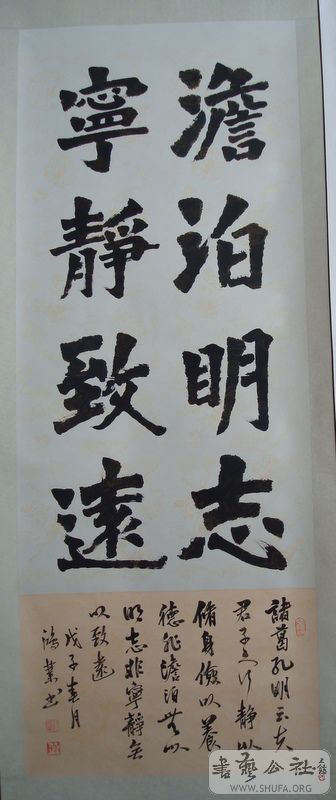 澹泊明志
寧靜致遠
諸葛孔明云夫
君子之行靜以
脩身儉以養
德非澹泊無以
明志非寧靜無
以致遠
戊子春月
鴻業书
書藝公社
WWW.SHUFA.ORG